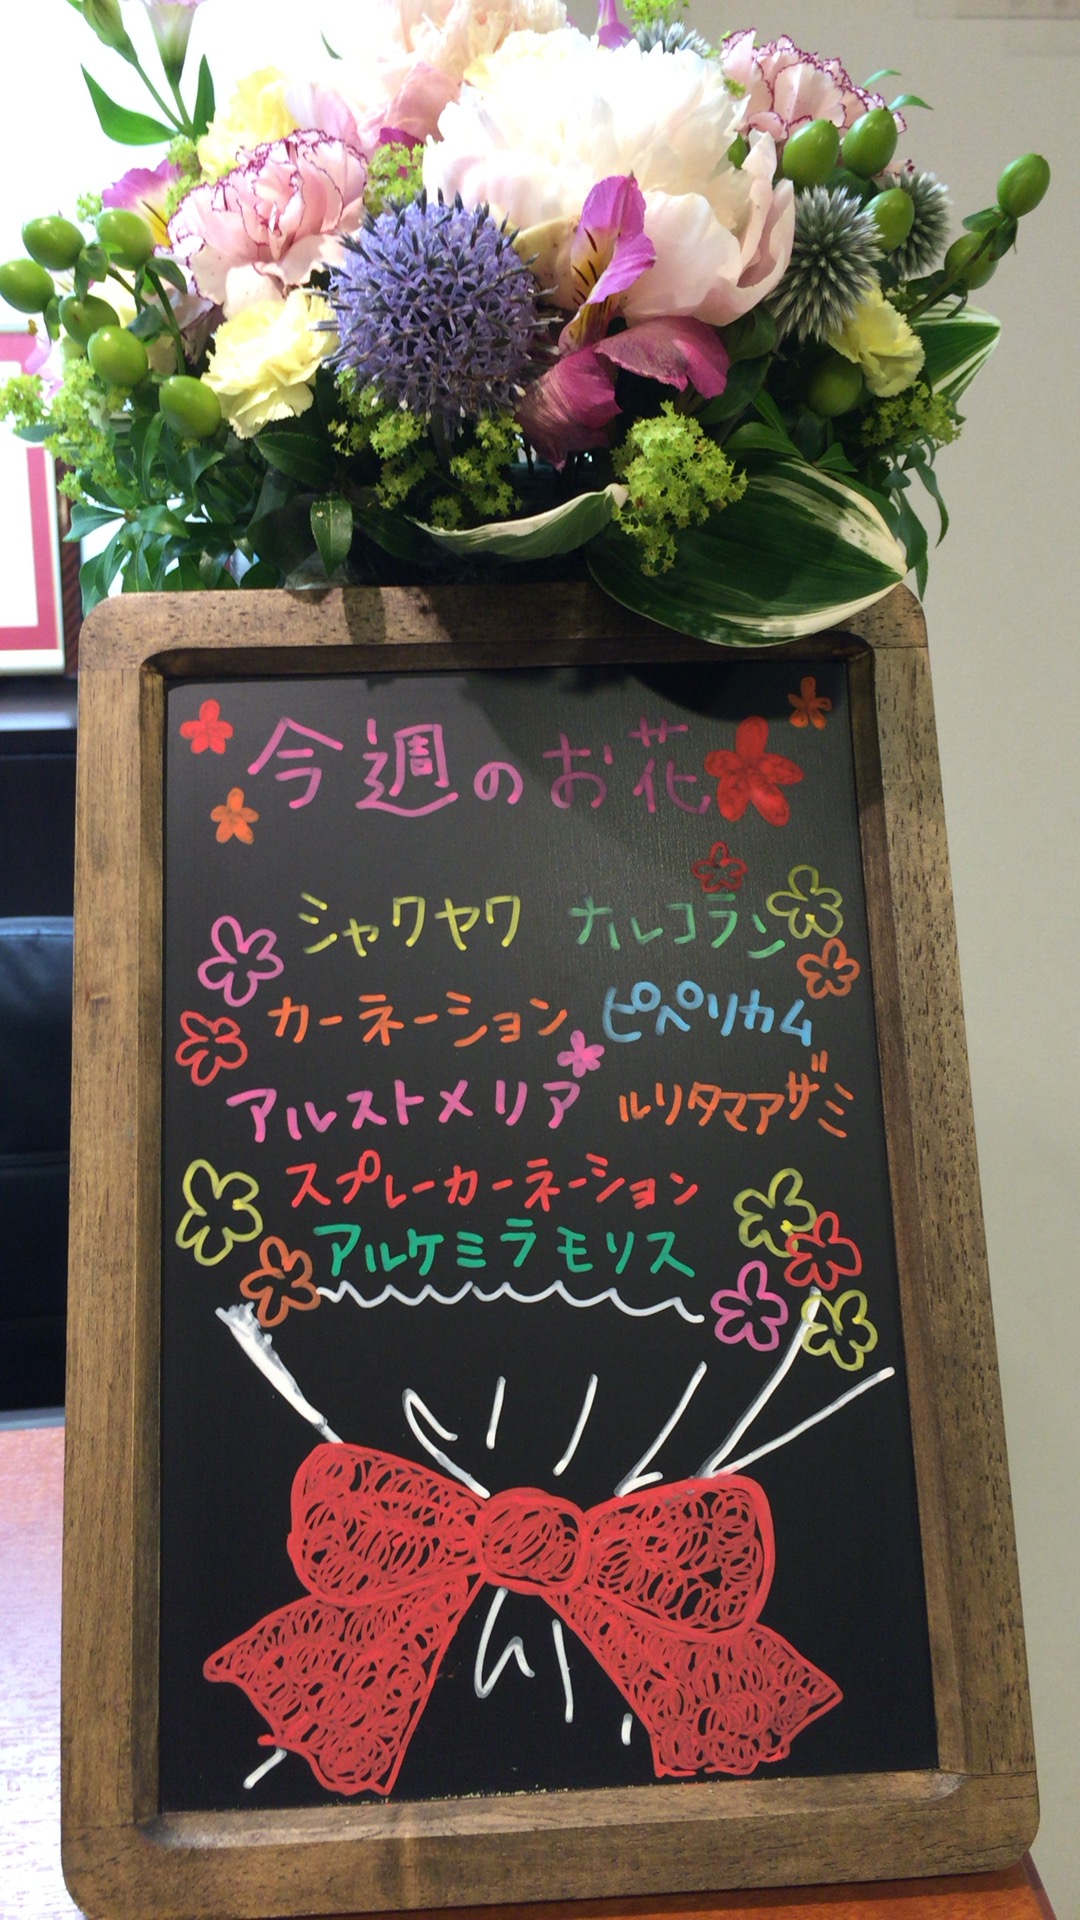 今週のお花
シャクヤク ナルコラン
カーネーション ピペリカム
アルストメリア ルリタマアザミ
スプレーカーネーション
アルケミラモリス